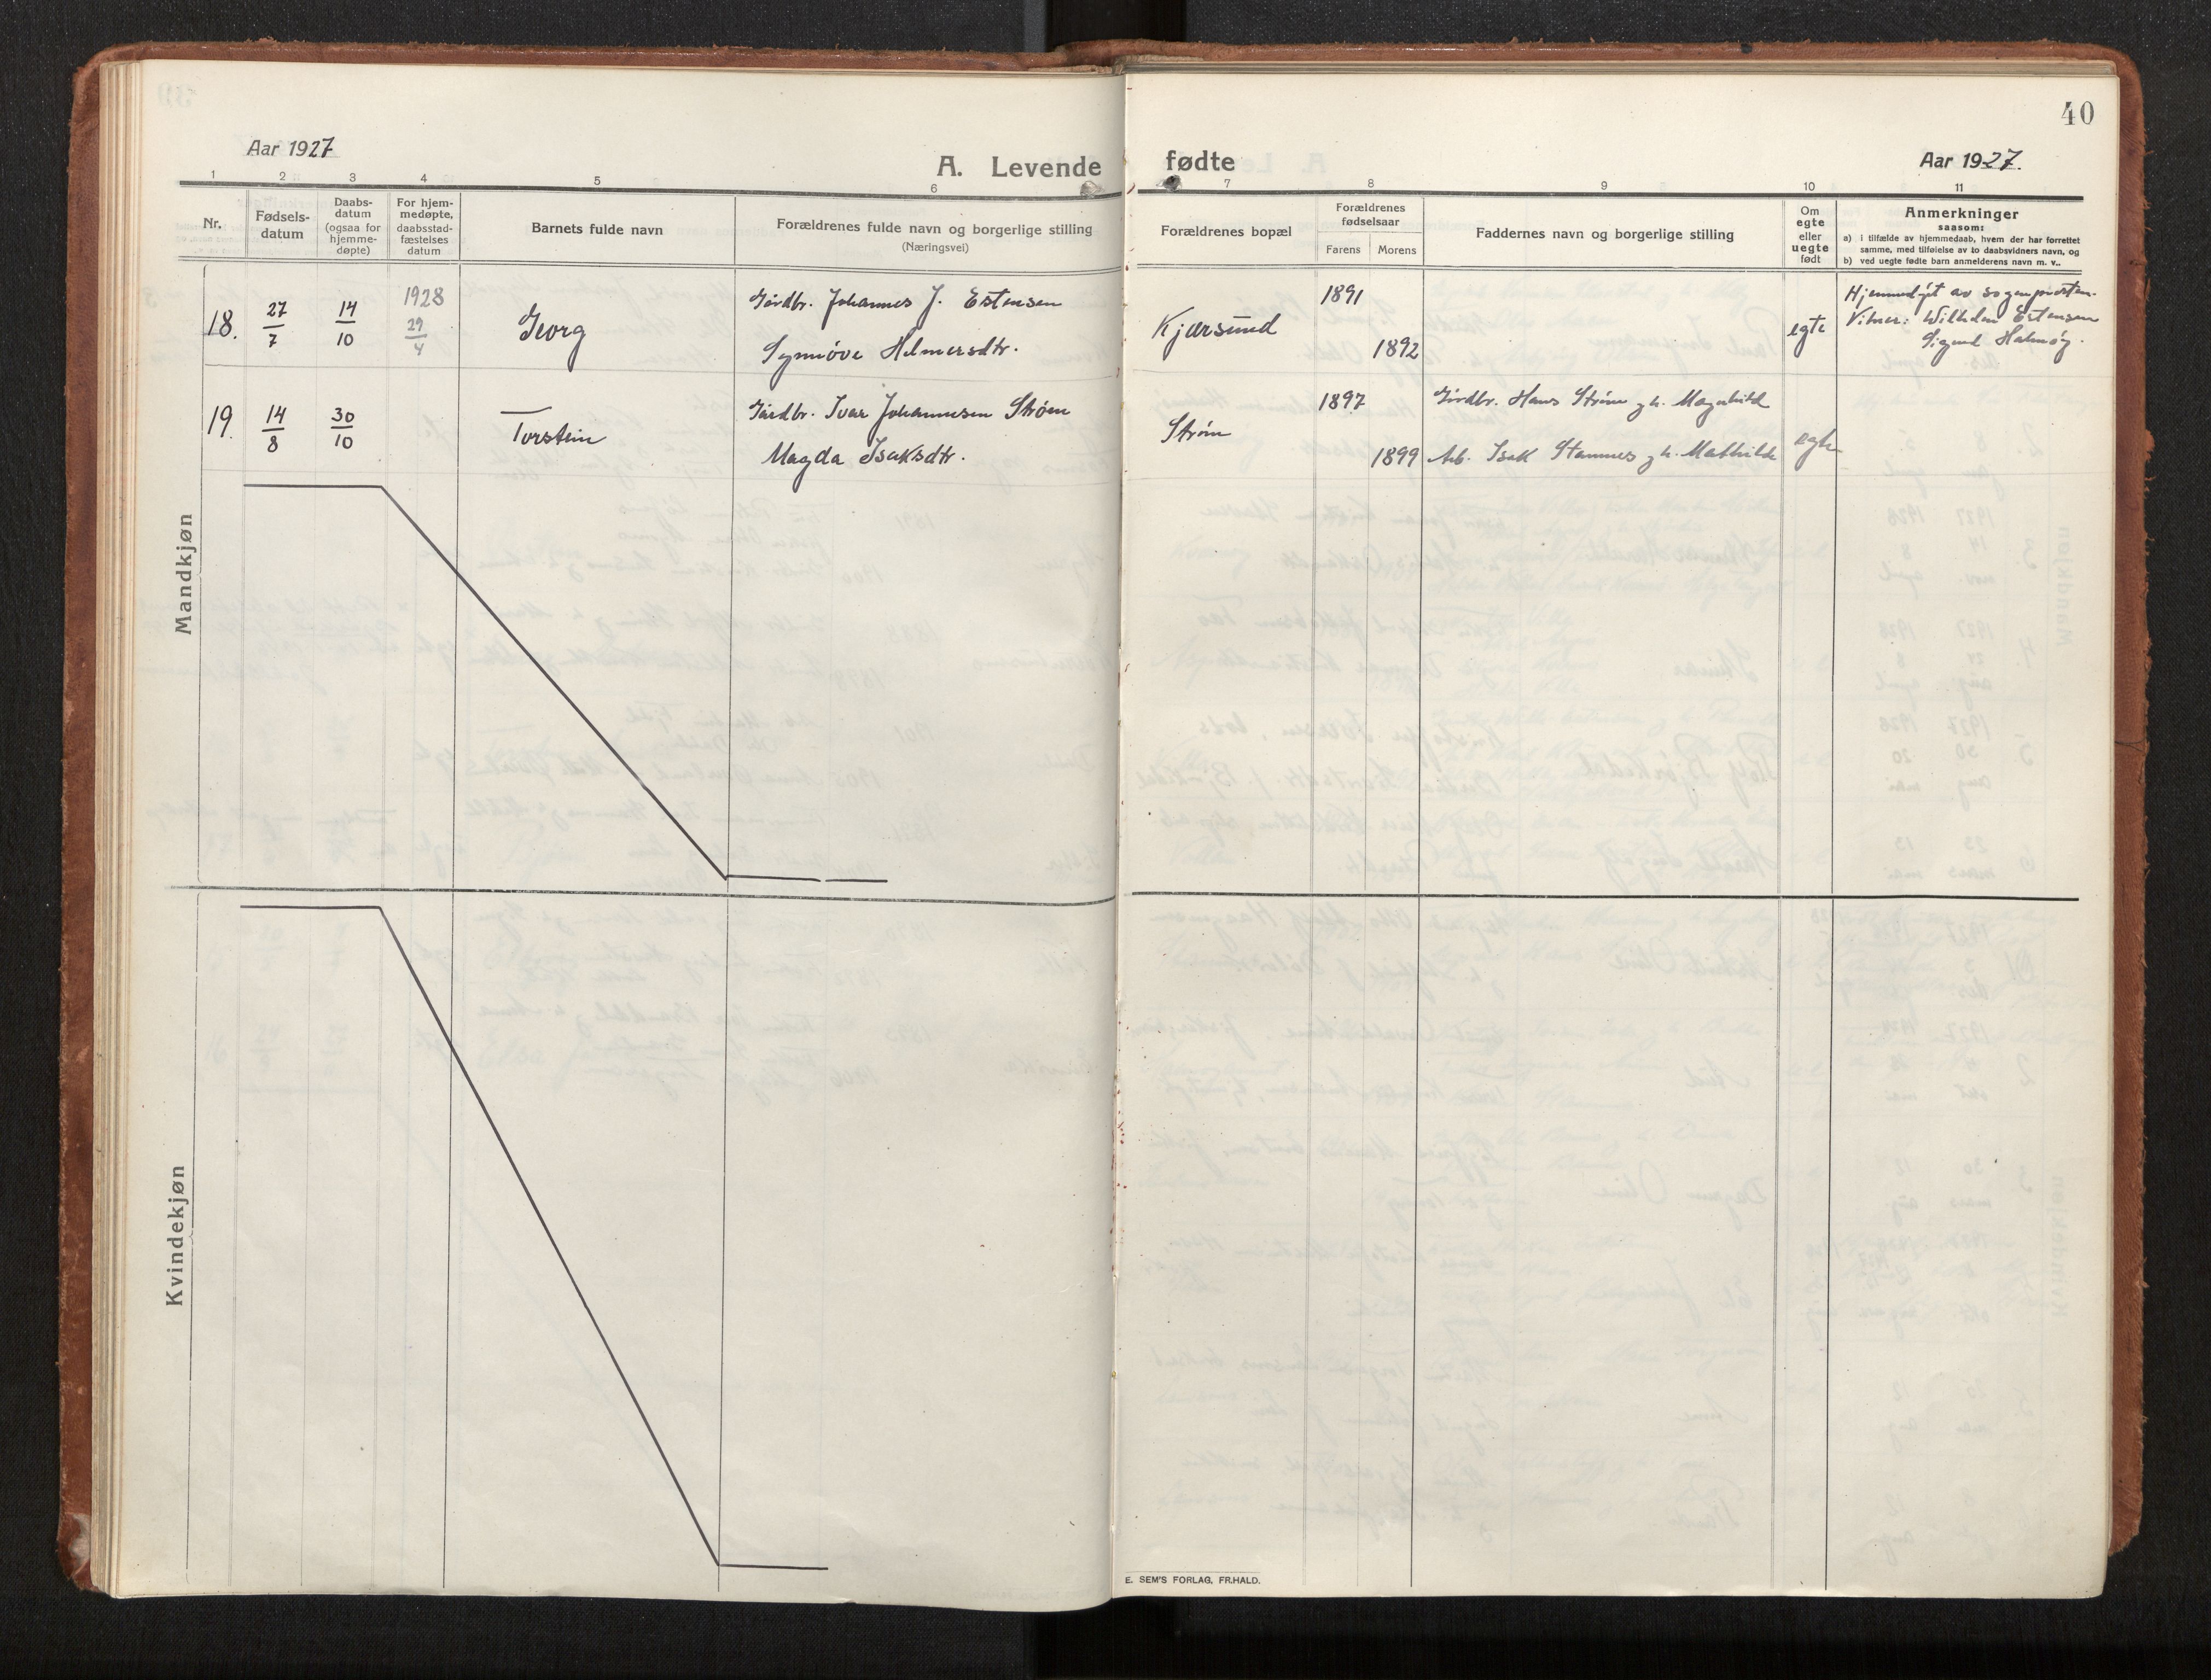 40
Aar 1927
A. Levende fødte
Aar 1927.
1 2 3 4 5 6 7 8 9 10 11
Nr.
Fødsels-
datum
Daabs-
datum
(ogsaa for
hjemme-
døpte)
For hjem-
medøpte,
daabsstad-
fæstelses
datum
Barnets fulde navn
Forældrenes fulde navn og borgerlige stilling
(Næringsvei)
Forældrenes bopæl
Forældrenes
fødselsaar
Farens Morens
Faddernes navn og borgerlige stilling
Om
egte
eller
uegte
født
Anmerkninger
saasom:
a) i tilfælde av hjemmedaab, hvem der har forrettet
samme, med tilføielse av to daabsvidners navn, og
b) ved uegte fødte barn anmelderens navn m. v..
Mandkjøn
18. 27/7 14/10 1928 29/4 Georg
Gårdbr. Johannes J. Estensen
Synnöve Helmersdtr.
Kjærsund 1891 1892 egte
Hjemmedøpt av sognepresten.
Vitner: Wilhelm Estensen
Sigurd Halmøy.
19. 14/8 30/10 Torstein
Gårdbr. Ivar Johannesen Strøm
Magda Isaksdtr.
Strøm 1897 1899
Gårdbr. Hans Strøm og h. Magnhild
Arb. Isak Stamnes og h. Mathilde
egte
Kvindekjøn
E. SEM'S FORLAG, FR.HALD.